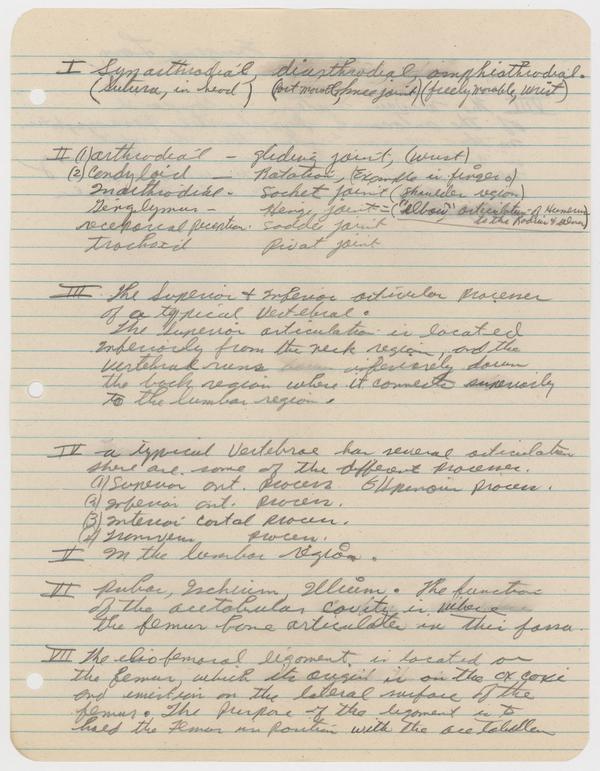 I Synarthrodial, diarthrodial, amphiarthrodial.
(Sutura, in head) knee joint) (freely movable, Wrist)
II (1) arthrodial - gliding joint, (wrist)
(2) Condyloid - Rotation, (Example is fingers)
Enarthrodial - Socket joint (shoulder region)
Ginglymus - Hinge joint = ("Elbow" articulation - Humerus
to the Radius & Ulna)
reception. Saddle joint
trochoid Pivot joint
III The Superior & Inferior articular processes
of a typical Vertebral.
The superior articulation is located
inferiorly from the neck region, and the
vertebral runs down
the back region where it connects superiorly
to the lumbar region.
IV a typical Vertebrae has several articulation
there are some of the different processes.
(1) Superior art. process process.
(2) Inferior art. process.
(3) Interior Costal process.
(4) Transverse process.
V In the lumbar region.
VI Pubas, Ischium, Illium. The function
of the acetabular cavity is
the femur bone articulates in this fossa.
VII The iliofemoral ligament is located on
the femur, which its origin is on the ox coxi
and insertion on the lateral surface of the
femur. The purpose of the ligament is to
hold the Femur in position with the